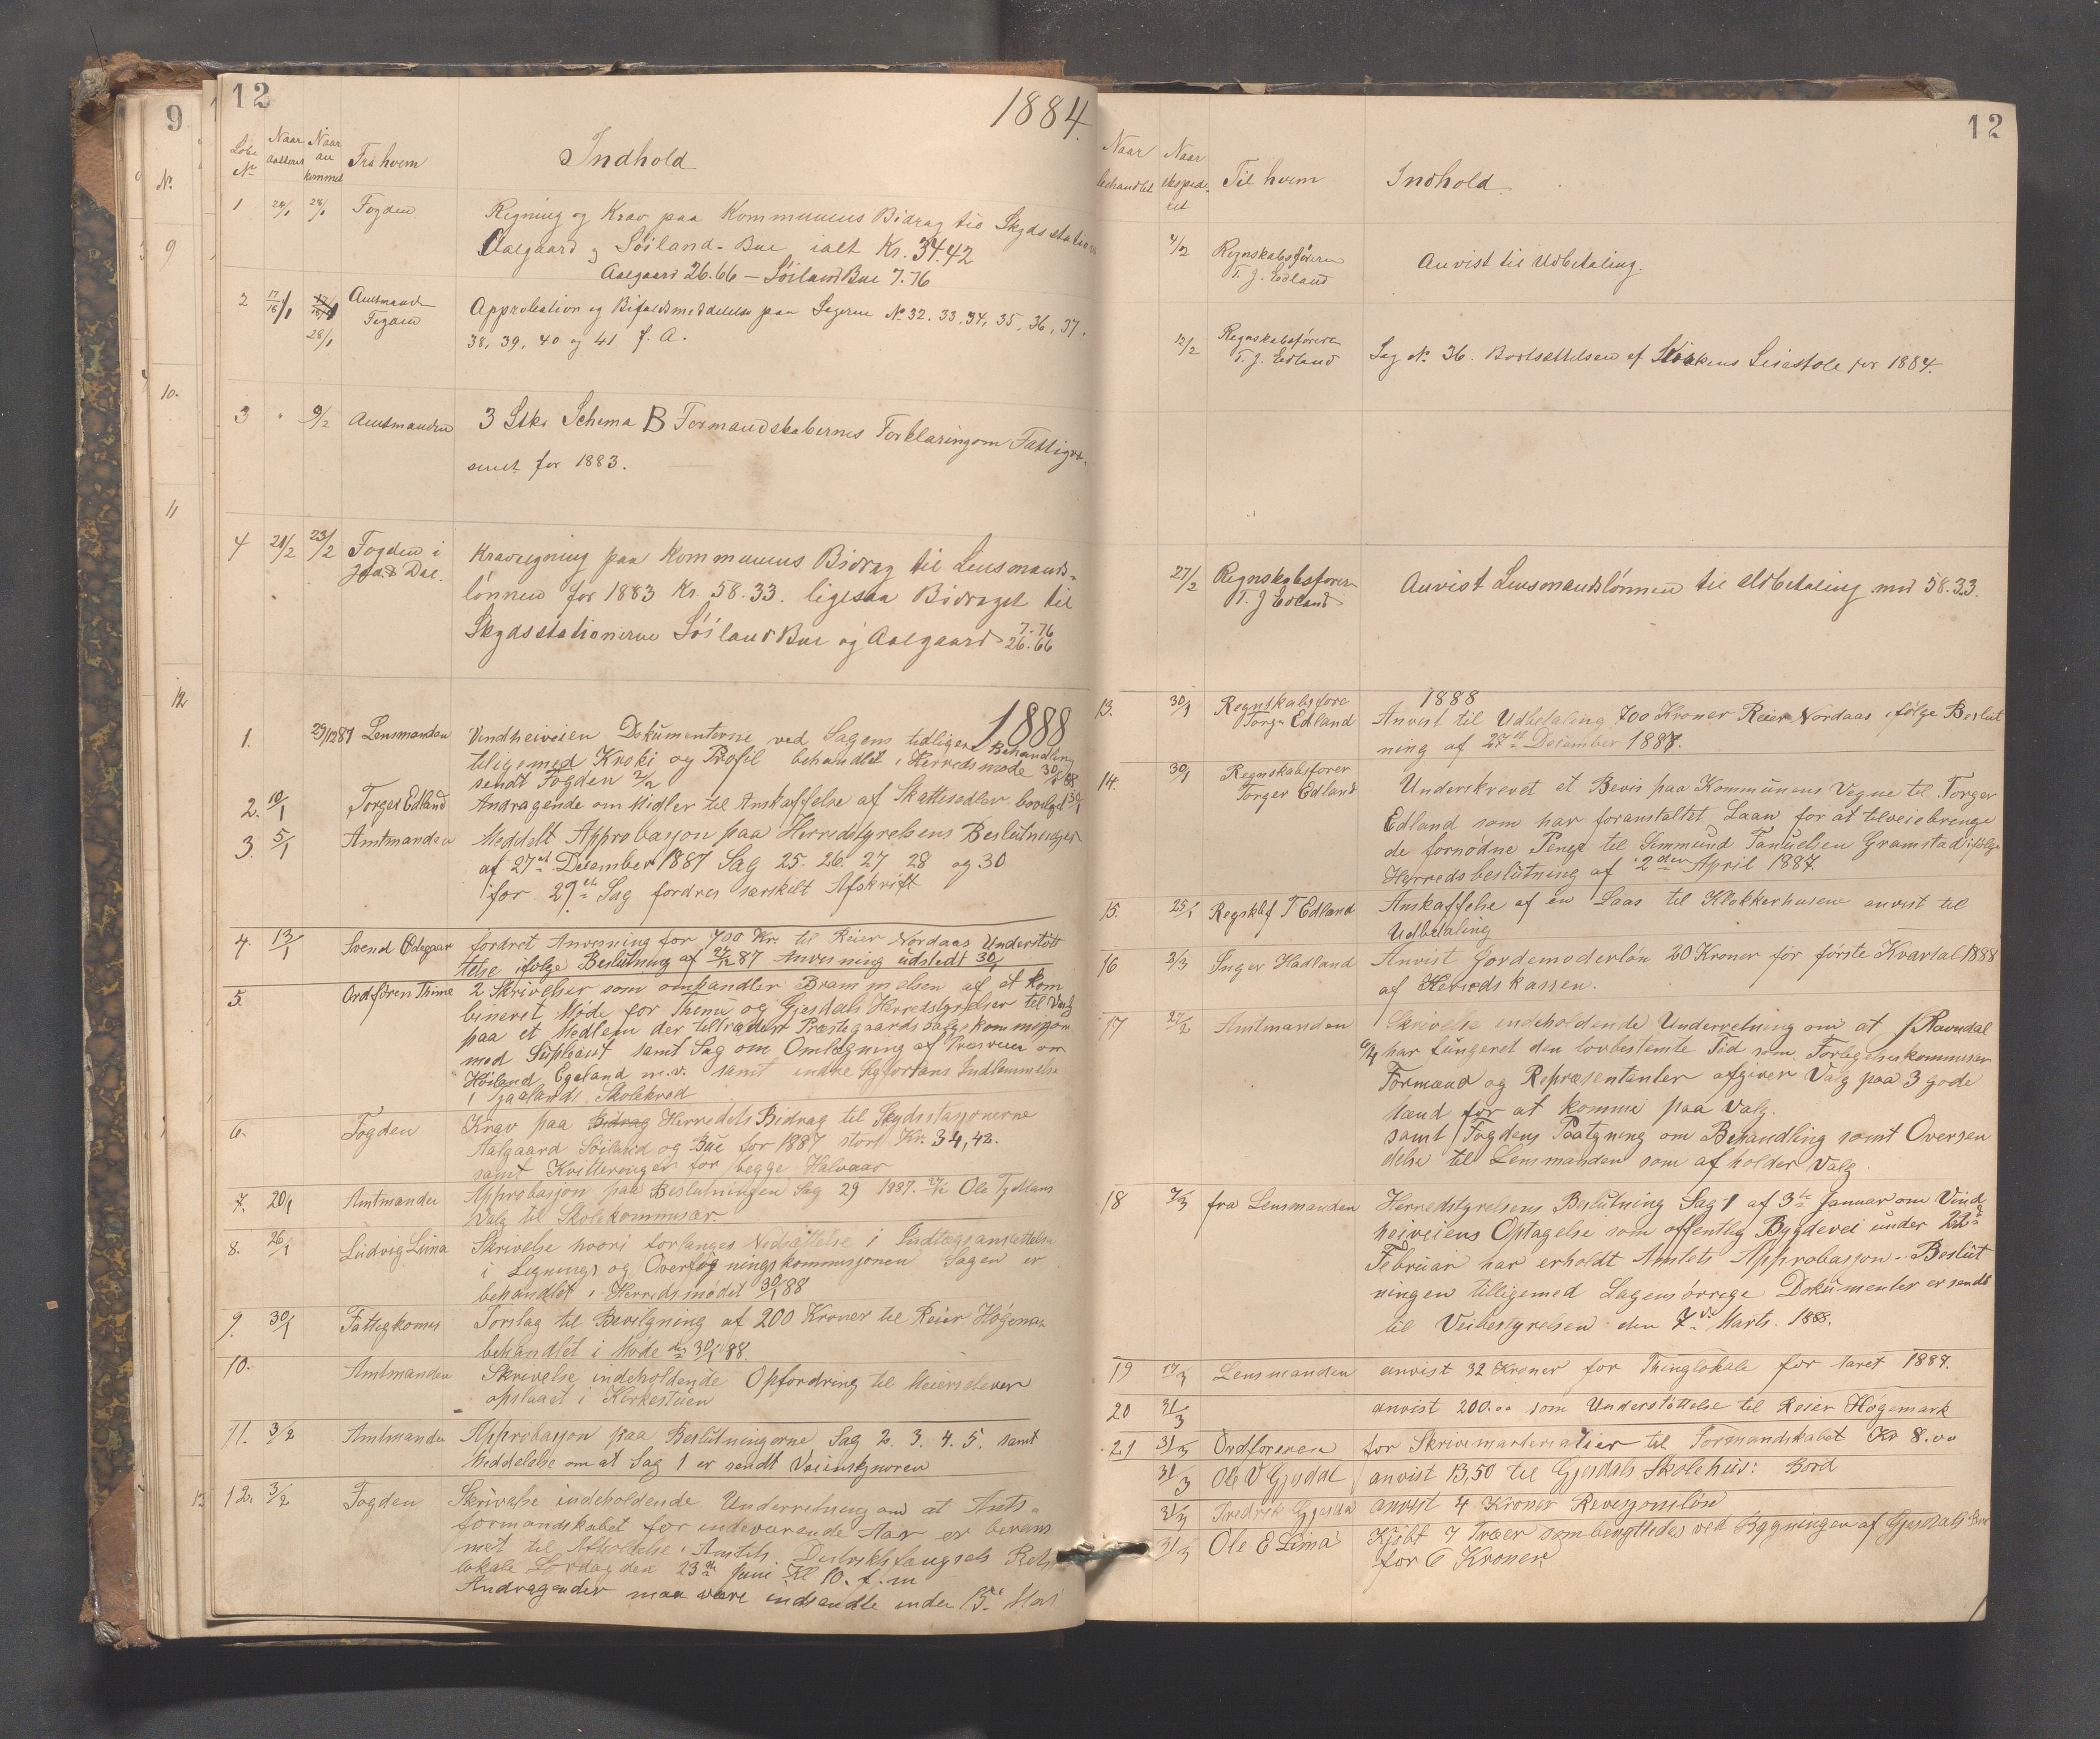 9
No.
9
10.
11
12
13
12
1884.
Löbe No
Naar dateret
Naar ankommet
Fra hvem
Indhold
1 24/1 28/1 Fogden
Regning og Krav paa Kommunens Bidrag til Skydsstation
Aalgaard og Söiland-Bue ialt Kr. 34.42
Aalgaard 26.66 — Söiland Bue 7.76
2 17/1 28/1 Amtmanden Fogden
Approbation og Bifaldsmeddelelse paa Sagerne No 32. 33. 34, 35, 36, 37.
38, 39, 40 og 41 f. A.
3 " 9/2 Amtmanden
3 Stk. Schema B Formandskabernes Forklaring om Fattigv-
senet for 1883.
4 21/2 23/2 Fogden i J. & Dal.
Kravregning paa Kommunens Bidrag til Lensmands-
lönnen for 1883 Kr. 58.33. ligesaa Bidraget til
Skydsstationerne Söiland Bue og Aalgaard 7.76 26.66
1888
1. 29/12 87 Lensmanden
Vindheiveien Dokumenterne ved Sagens tidligere Behandling
tiligemed Kroki og Profil behandlet i Herredsmöde 30/1 88
sendt Fogden 2/2
2. 10/1 Torger Edland
Andragende om Midler til Anskaffelse af Skattesedler bevilget 30/1
3. 5/1 Amtmanden
Meddelt Approbasjon paa Herredstyrelsens Beslutninger
af 27de December 1887 Sag 25. 26. 27 28 og 30
for 29de Sag fordres særskilt Afskrift
4. 13/1 Svend Ödegaar
fordret Anvisning for 700 Kr. til Reier Nordaas Understöt
telse ifölge Beslutning af 27/12 87 Anvisning udstedt 30/1
5. Ordföreren Thime
2 Skrivelser som omhandler Brammelsen af et kom
bineret Möde for Thime og Gjesdals Herredstyrelser til Valg
paa et Medlem der tiltræder Præstegaardssalgskommisjon
med Supleant samt Sag om Omlægning af Præsveien om
Höiland Egeland m.v. samt indre Indlemmelse
i Gjaalands Skolekreds
6. Fogden
Krav paa Bidrag Herredets Bidrag til Skydsstasjonerne
Aalgaard Söiland og Bue for 1887 stort Kr. 34,42.
samt Kvitteringer for begge Halvaar
7. 20/1 Amtmanden
Approbasjon paa Beslutningen Sag 29 1887. 27/12 Ole Tjetlans
Valg til Skolekommisær.
8. 26/1 Ludvig Lima
Skrivelse hvori forlanges Nedsættelse i Indtægsansættelse
i Lignings og Overligningskommisjonen Sagen er
behandlet i Herredsmödet 30/1 88
9. 30/1 Fattigkomis
Forslag til Bevilgning af 200 Kroner til Reier Högemar
behandlet i Möde den 30/1 88.
10. Amtmanden
Skrivelse indeholdende Opfordring til Meierielever
opslaaet i Kirkestuen
11. 3/2 Amtmanden
Approbasjon paa Beslutningerne Sag 2. 3. 4. 5. samt
Meddelelse om at Sag 1 er sendt Veiinskjnören
12. 3/2 Fogden
Skrivelse indeholdende Underretning om at Amts-
formandskabet for indeværende Aar er beram
met til Afholdelse i Amtets Distriktsfængsels Rets
lokale Lördag den 23de Juni Kl 10. f. m
Andragender maa være indsendte inden 15de Mai
12
Naar behandlet
Naar ekspederet
Til hvem
Indhold.
4/2 Regnskabsföreren T. J. Edland
Anvist til Udbetaling.
12/2 Regnskabsföreren T. J. Edland
Sag No. 36. Bortsættelsen af Kirkens Leiestole for 1884.
27/2 Regnskabsföreren T. J Edland
Anvist Lensmandslönnen til Udbetaling med 58.33.
1888
13. 30/1 Regnskabsföre Torger Edland
Anvist til Udbetaling 700 Kroner Reier Nordaas ifölge Beslut
ning af 27de December 1887.
14. 30/1 Regnskabsförer Torger Edland
Underskrevet et Bevis paa Kommunens Vegne til Torger
Edland som har foranstaltet Laan for at tilveiebringe
de fornödne Penge til Simmund Gramstad ifölge
Herredsbeslutning af 2den April 1887.
15. 25/1 Regskbf T Edland
Anskaffelse af en Laas til Klokkerhusene anvist til
Udbetaling
16 3/3 Inger Hadland
Anvist Jordemoderlön 20 Kroner for förste Kvartal 1888
af Herredskassen.
17 27/2 Amtmanden
Skrivelse indeholdende Underretning om at J Ravndal
har fungeret den lovbestemte Tid som Forligelseskommisær
Formænd og Repræsentanter afgiver Valg paa 3 gode
Mænd for at komme paa Valg.
samt Fogdens Paategning om Behandling samt Oversen
delse til Lensmanden som afholder Valg.
18 7/3 fra Lensmanden
Herredstyrelsens Beslutning Sag 1 af 3te Januar om Vind
heiveiens Optagelse som offentlig Bygdevei under 22de
Februar har erholdt Amtets Approbasjon. Beslut
ningen tilligemed Sagens örrege Dokumenter er sendt
til Veibestyrelsen den 7de Marts. 1888.
19 17/3 Lensmanden
anvist 32 Kroner for Thinglokale for Aaret 1887.
20 31/3
anvist 200.00 som Understöttelse til Reier Högemark
21 31/3 Ordföreren
for Skrivematerialier til Formandskabet Kr 8.00
31/3 Ole V Gjesdal
anvist 13,50 til Gjesdals Skolehus: Bord
31/3 Fredrik Gjesdal
anvist 4 Kroner Revisjonslön
31/3 Ole E Lima
Kjöbt 7 Træer som benyttedes ved Bygningen af Gjesdals Bro
for 6 Kroner.